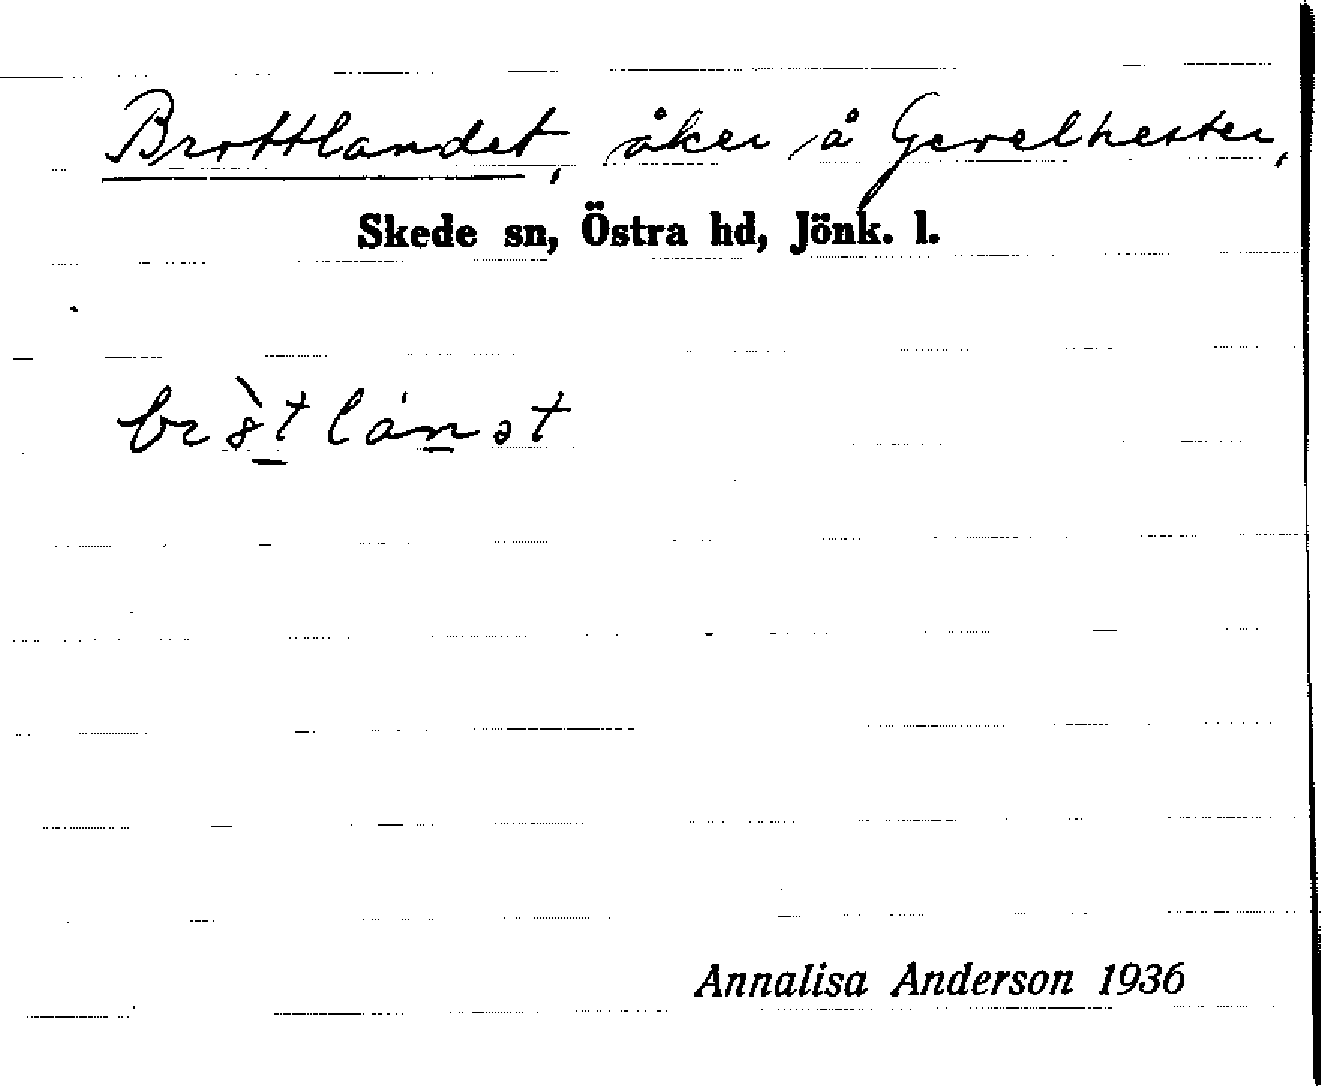 Brottlandet, åker å Gevelhester,
Skede sn, Östra hd, Jönk. l.
Annalisa Anderson 1936